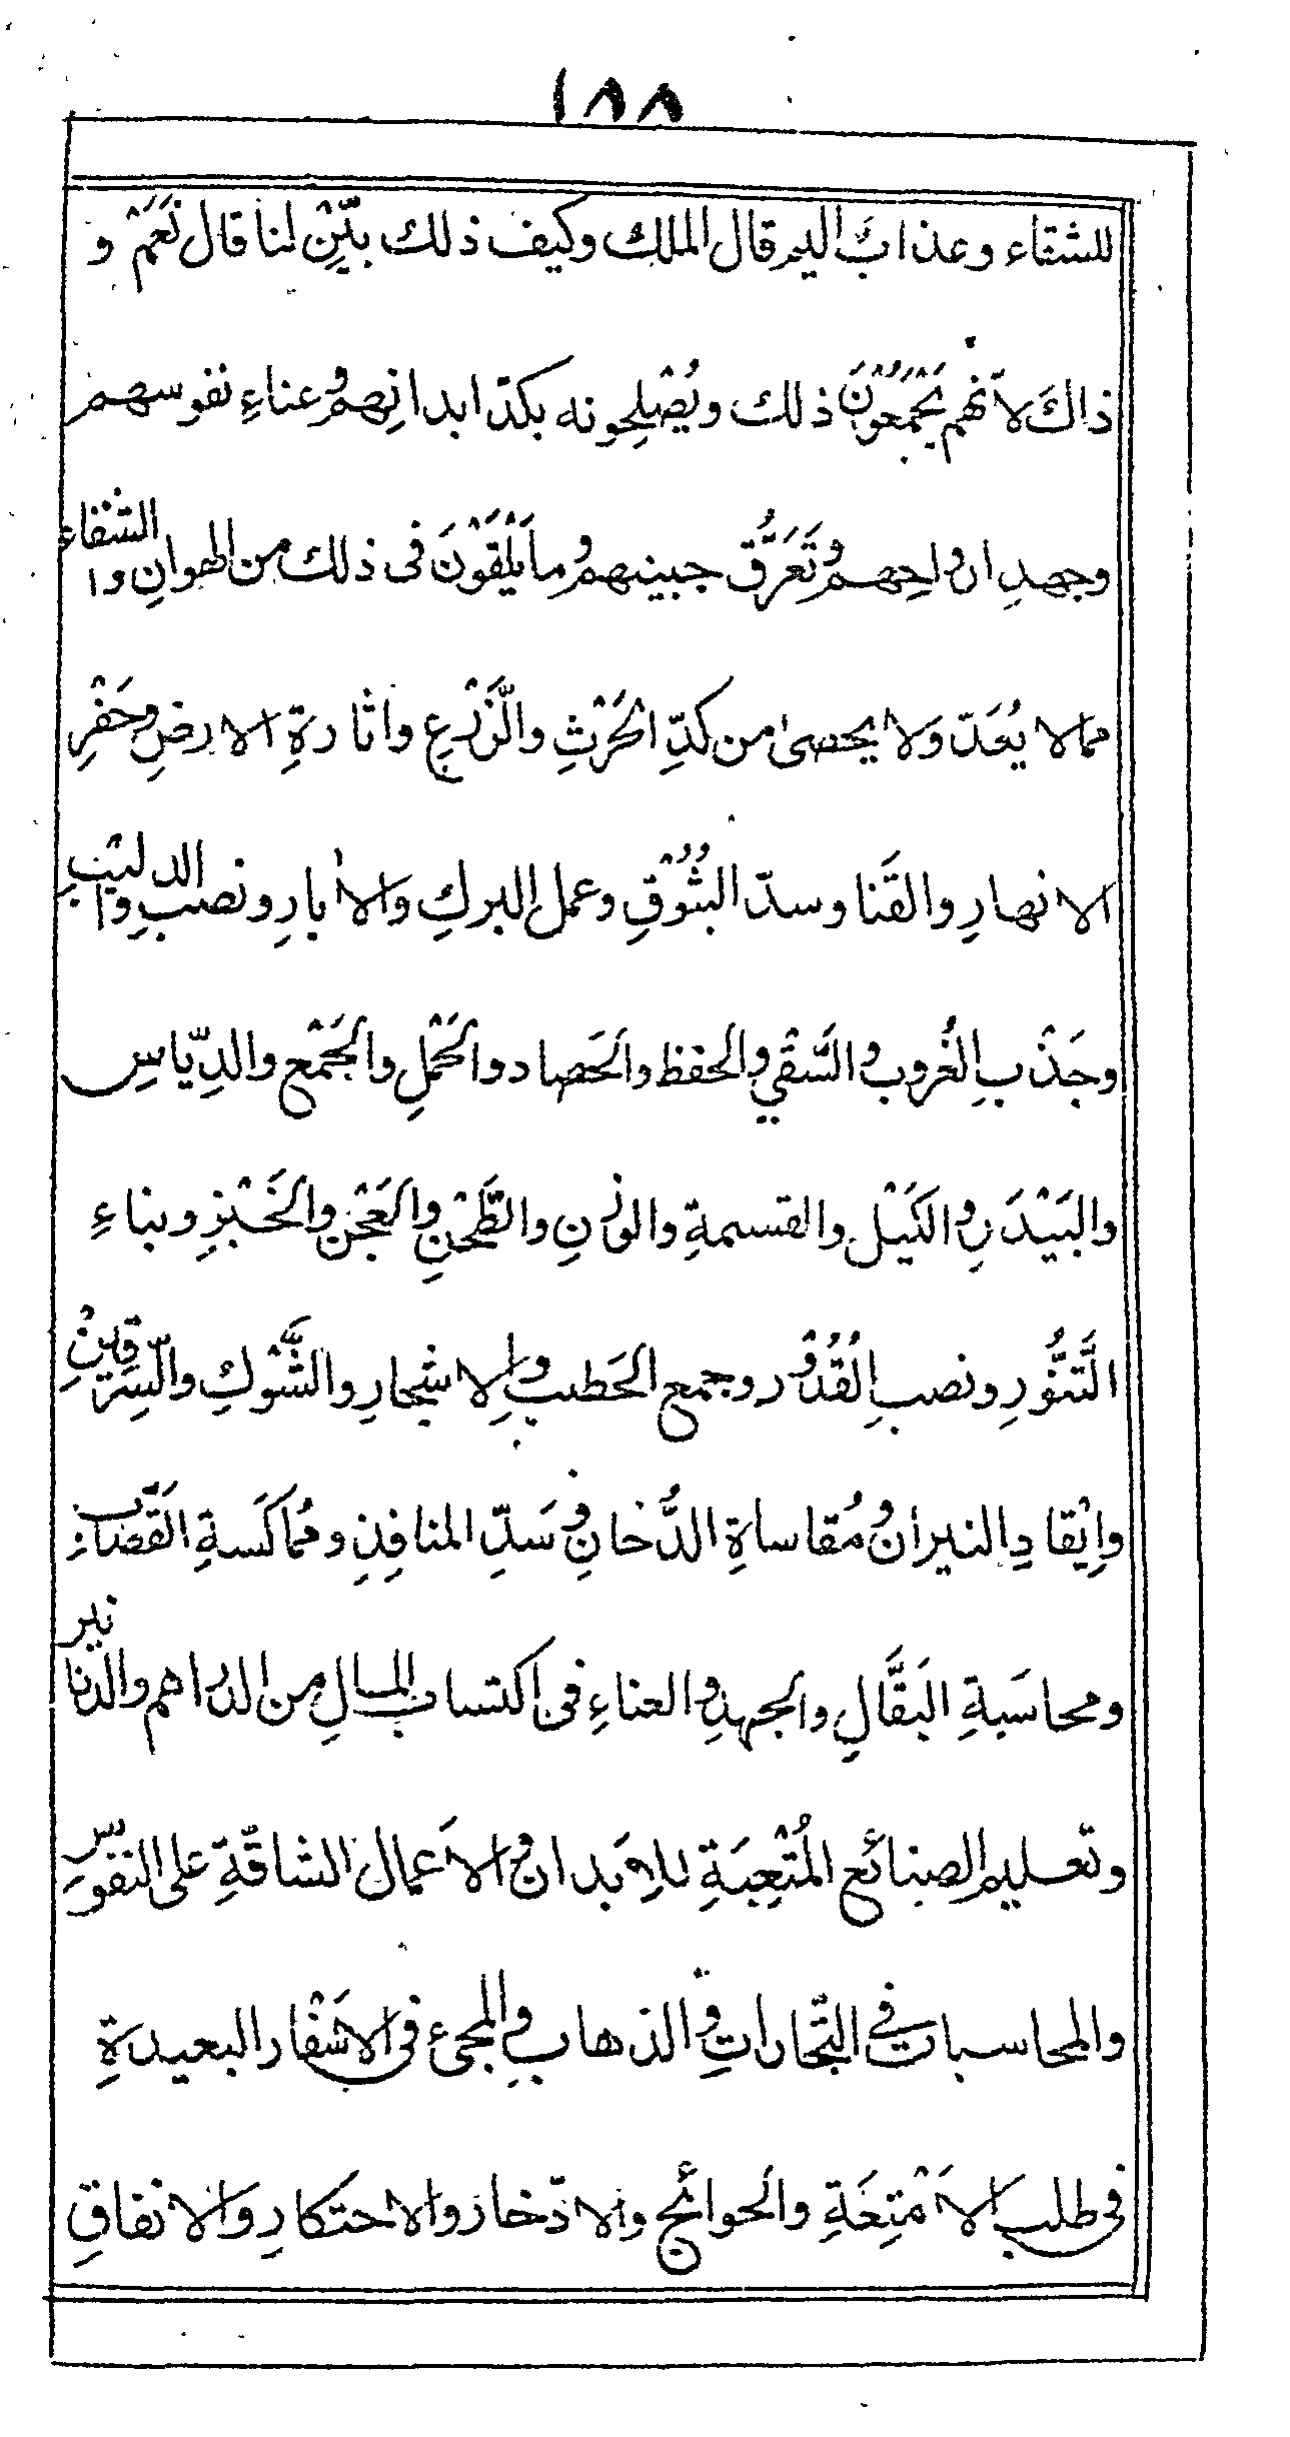 ١٨٨
للشتاء وعذابٌ اليم قال الملك وكيف ذلك بَيِّنْ لنا قال نَعَمْ و
ذاكَ لاَنّهم يَجْمَعُوْنَ ذلك ويُصْلِحونه بكدّ ابدانِهم وعناءِ نفوسهم
وجهدِ ارواحِهم وتَعَرُّقِ جبينهم وما يَلْقَوْنَ فى ذلك من الهوانِ والشقاء
مما لا يُعَدّ ولا يحصىٰ من كدِّ الحَرْثِ والزَّرْعِ واثارةِ الارضِ وحَفْرِ
الانهارِ والقَنا وسدّ البُثُوْقِ وعمل البركِ والاٰبارِ ونصبِ والدليبِ
وجَذْبِ الغُروبِ والسَّقْيِ والحفظ والحَصاد والحَمْلِ والجَمْع والدِّياسِ
والبَيْدَرِ والكَيْلِ والقسمةِ والوزنِ والطَّحْنِ والعَجْنِ والخَبْزِ وبناءِ
التَّنُّورِ ونصبِ القُدُوْر وجمع الحَطبِ والاشجارِ والشَّوْكِ والسِّرْقينِ
واِيْقادِ النيران ومُقاساةِ الدُّخانِ وسَدِّ المنافِذِ ومُماكَسةِ القَصَّابِ
ومحاسَبةِ البَقَّالِ والجهدِ والعناءِ فى اكتساب المالِ من الدراهم والدنانير
وتعليم الصنائع المُتْعِبَةِ للاَبدان والاَعمال الشاقّةِ على النفوسِ
والمحاسبات فى التّجاراتِ والذهابِ والمجىء فى الاَسْفار البعيدةِ
فى طلب الاَمْتِعَةِ والحوائج والادّخار والاحتكارِ والانفاقِ